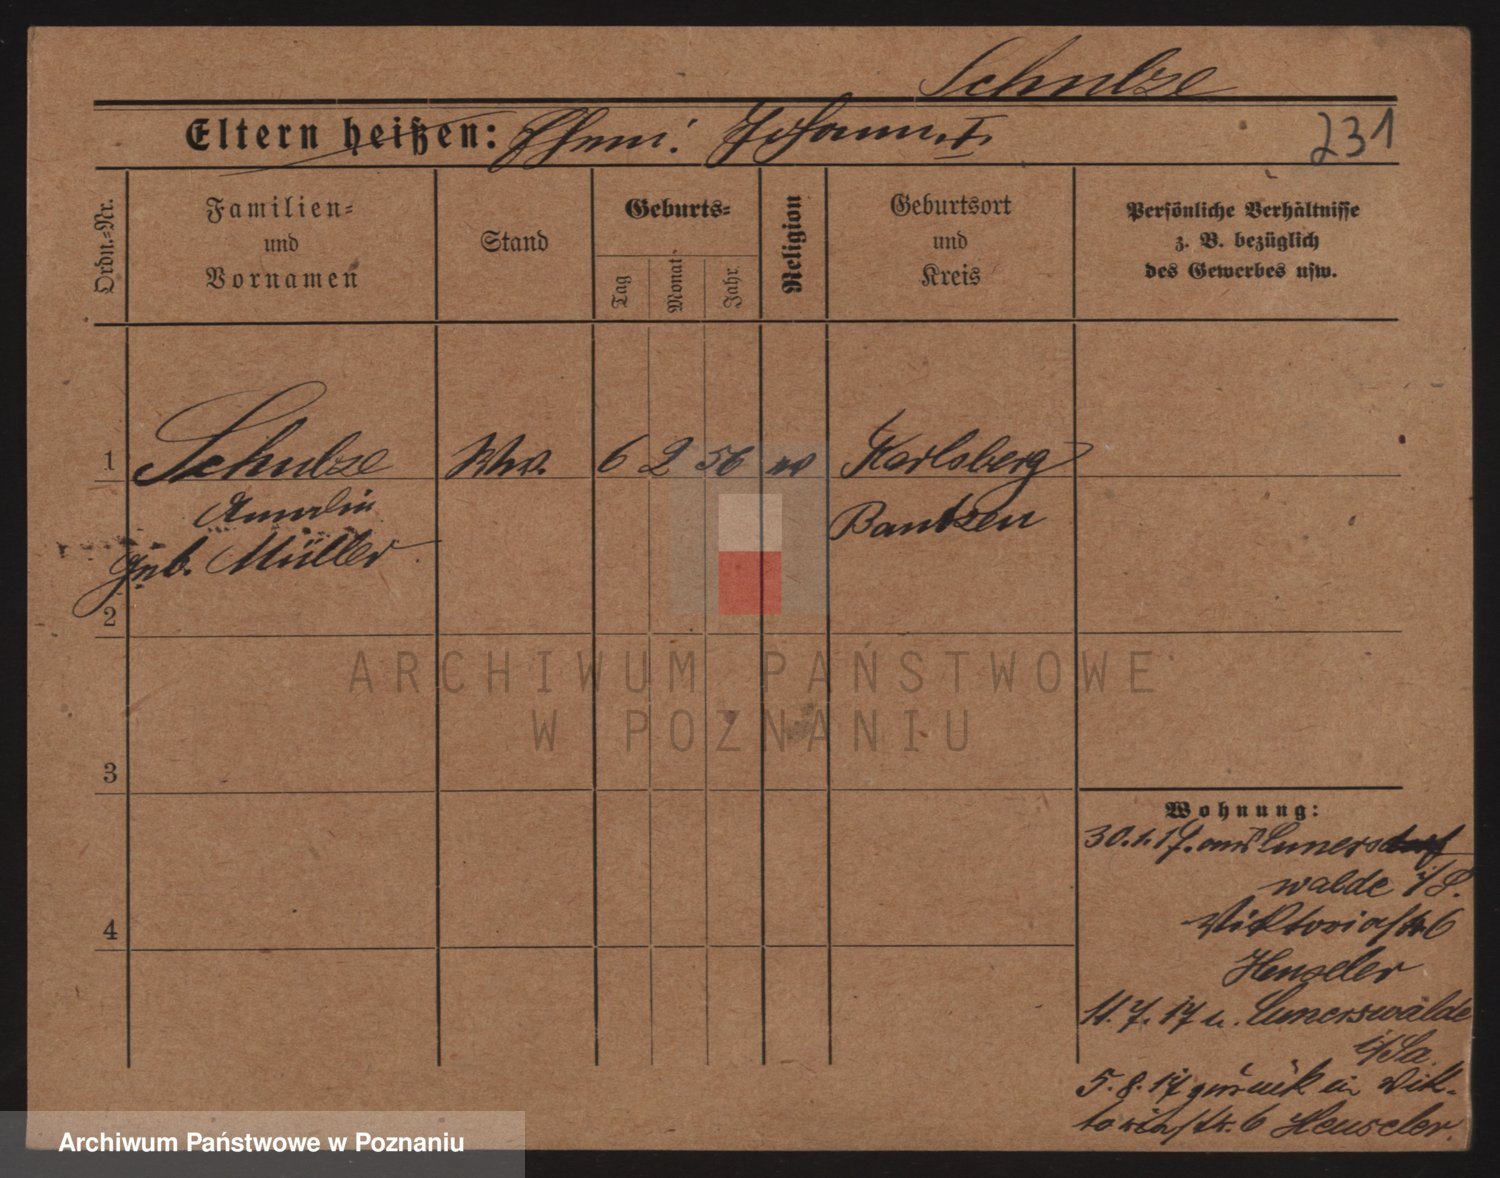 Schulze
Eltern heißen: Ehem: Johann. I.
231
Ordn.=Nr.
Familien=
und
Vornamen
Stand
Geburts=
Tag
Monat
Jahr
Religion
Geburtsort
und
Kreis
Persönliche Verhältnisse
z. B. bezüglich
des Gewerbes usw.
1 Schulze Wwe. 6 2 56 ev Karlsberg
Amalie Bautzen
geb. Müller
2
3
4
Wohnung:
30.1.17. aus Cunersdorf
walde i/S.
Viktoriastr. 6
Henseler
11.7.17 n. Cunerswalde
i/Sa.
5.8.17 zurück in Vik-
toriastr. 6 Henseler.
ARCHIWUM PAŃSTWOWE
W POZNANIU
Archiwum Państwowe w Poznaniu